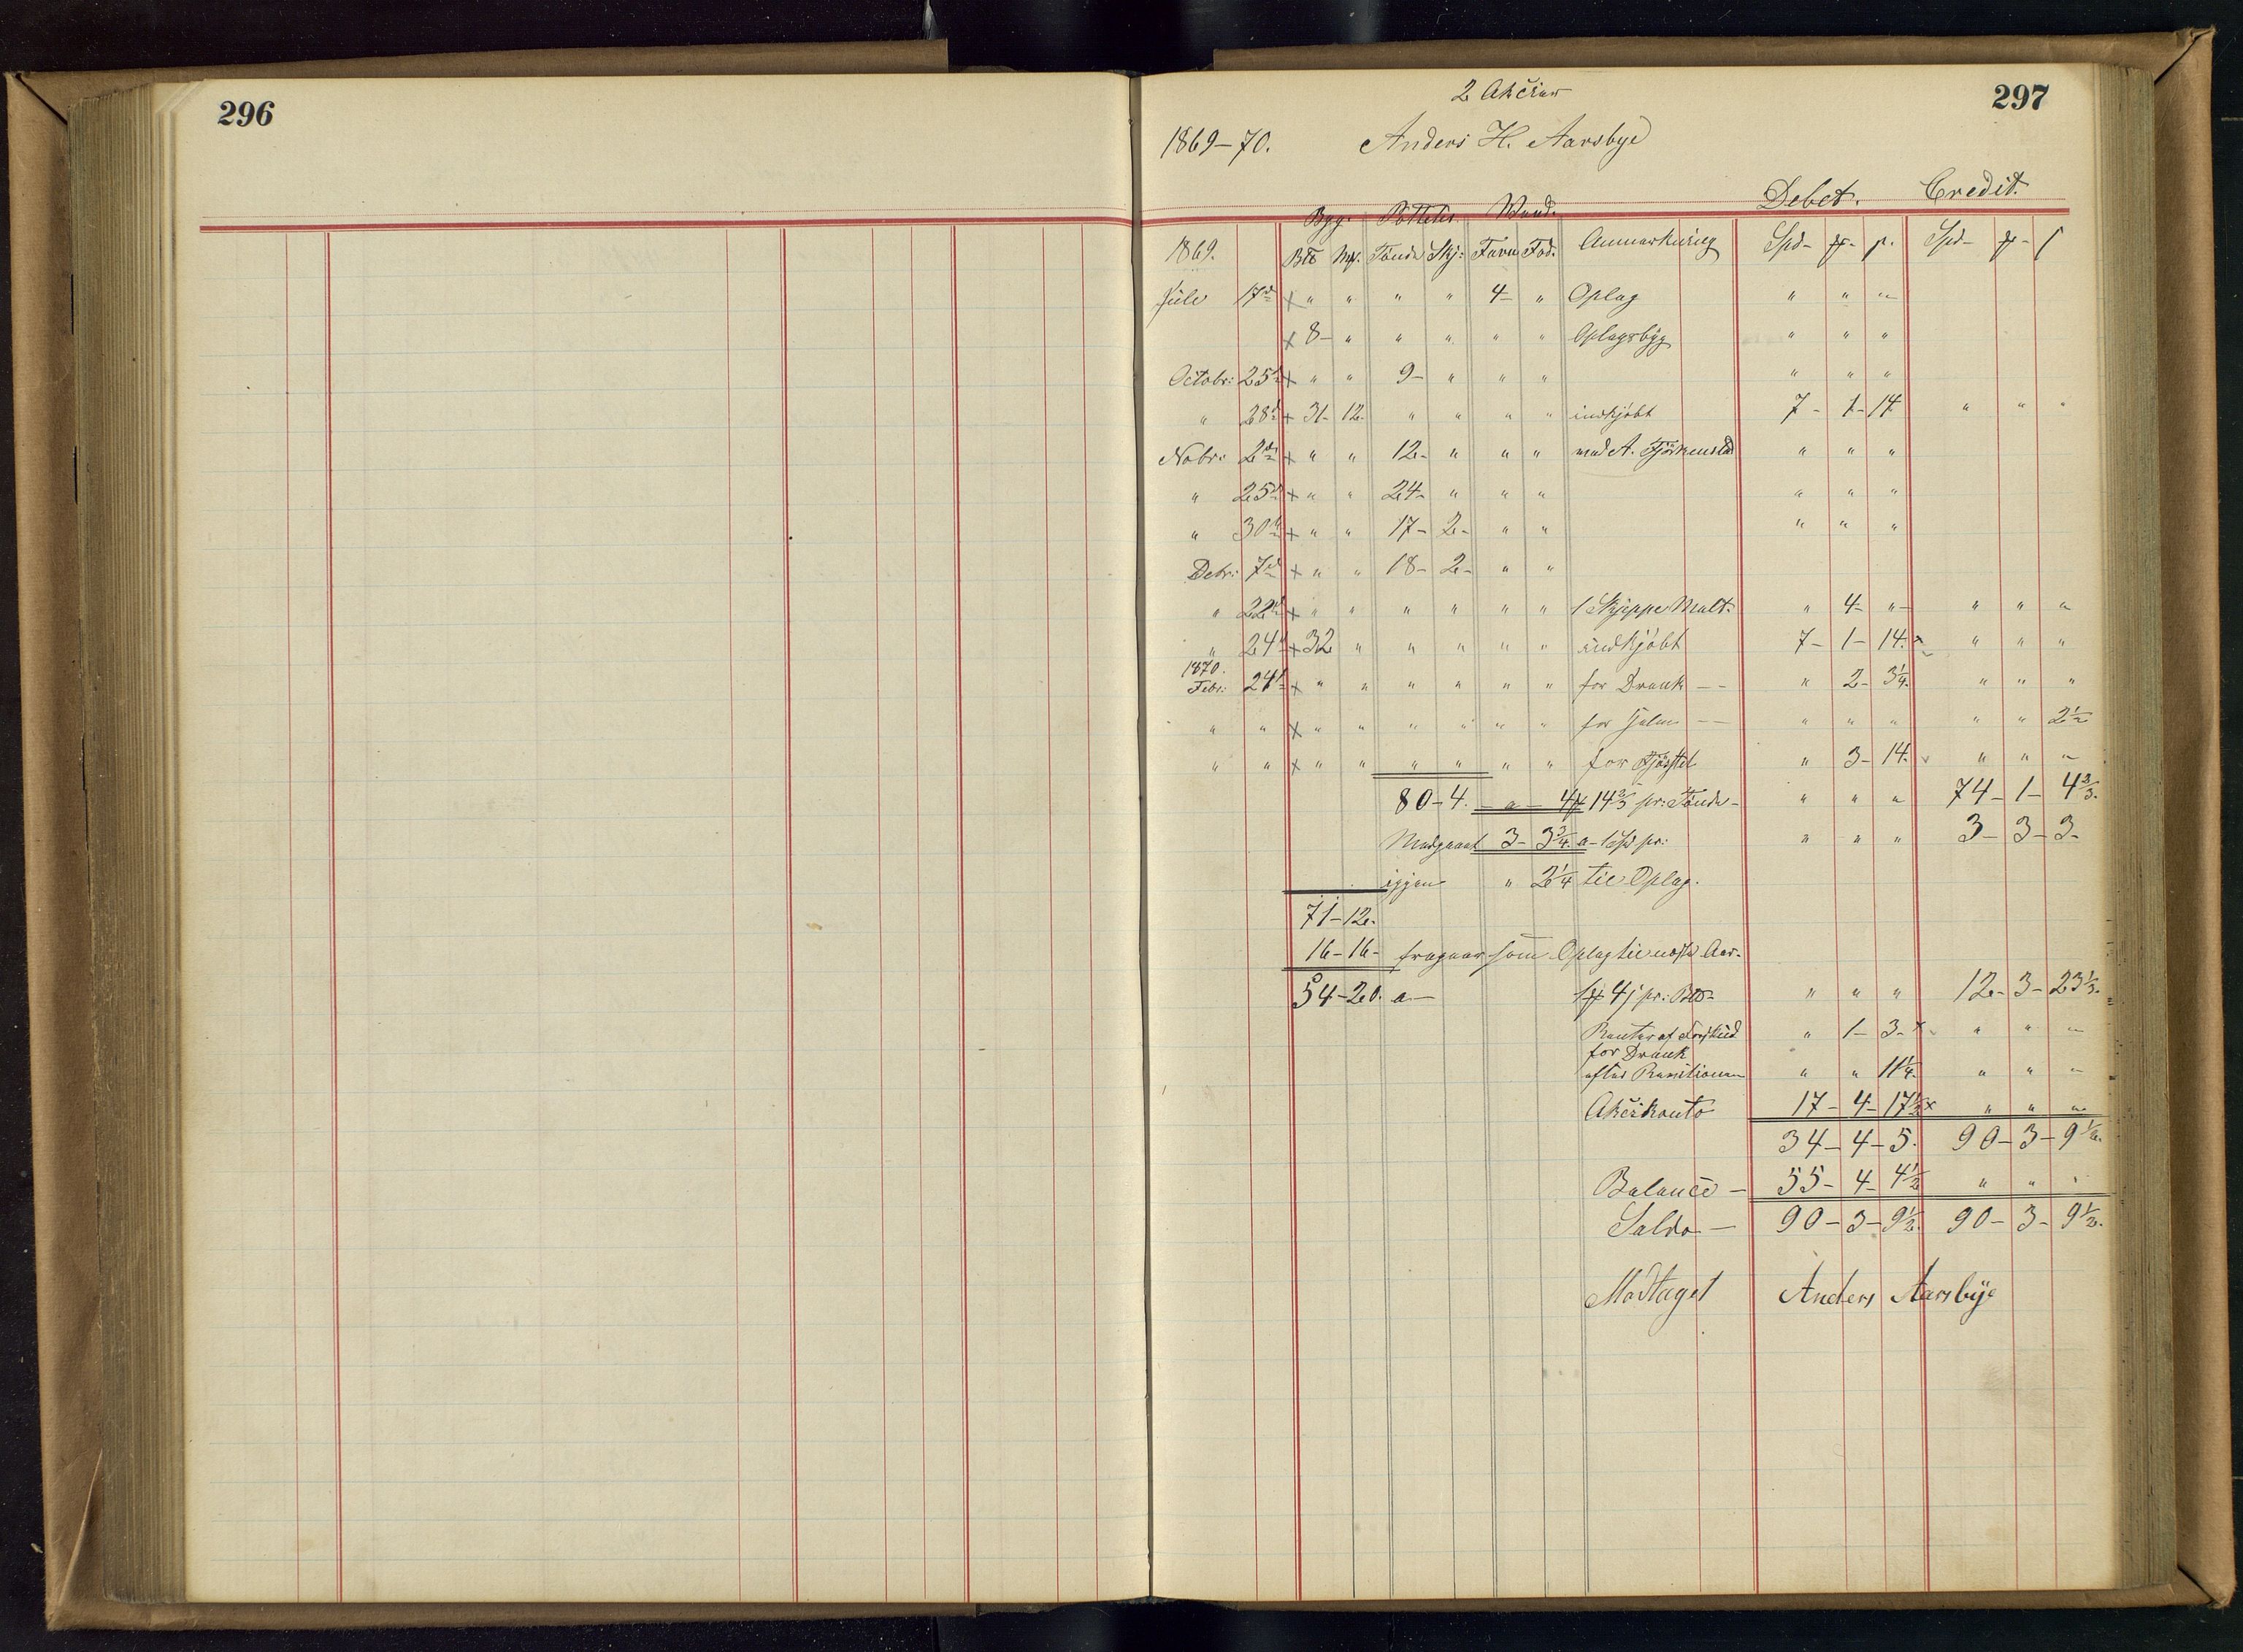 296
297
2 Akcier
1869-70. Anders H. Aarsbye
Debet. Credit.
Byg. Potteter. Wand.
1869. Btd Mk. Tönde Skj: Favn Fod. Anmærkning Spd- Spd-
Juli 17d x " " " " 4- " Oplag " " "
x 8- " " " " " Oplagsbyg " " "
Octobr: 25d x " " 9- " " " " " "
" 28d x 31- 12. " " " " indkjöbt 7- 1- 14 " " "
Nobr: 2d x " " 12- " " " med A. " " "
" 25d x " " 24- " " " " " "
" 30d x " " 17- 2- " " " " "
Debr: 7d x " " 18- 2- " "
" 22d x " " " " " " 1 Skjeppe Malt. " 4- " " " "
" 24d x 32 " " " " " indkjöbt 7- 1- 14. x " " "
1870.
Febr: 24d x " " " " " " for Drank -- " 2- 3¼. " " "
" " x " " " " " " for -- " " " " " 2½
" " x " " " " " " for " 3- 14. " " "
80-4. - a - 4 14⅔ pr: Tönde - " " " 74- 1- 4⅔.
Medgaaet 3- 3¾. a- 1 Spd pr: " " " 3- 3- 3-
igjen " 2¼ til Oplag.
71-12.
16-16- fragaar som Oplag til næste Aar-
54-20. a- 1 4 pr: Btd- " " " 12- 3- 23⅓.
Renter af Forskud " 1- 3- x " " "
for Drank
efter " " 11¼. " " "
Akcikonto 17- 4- 17½ x " " "
34- 4- 5. 90- 3- 9½.
Balance - 55- 4- 4½ " " "
Saldo - 90- 3- 9½. 90- 3- 9½.
Modtaget Anders Aarsbye